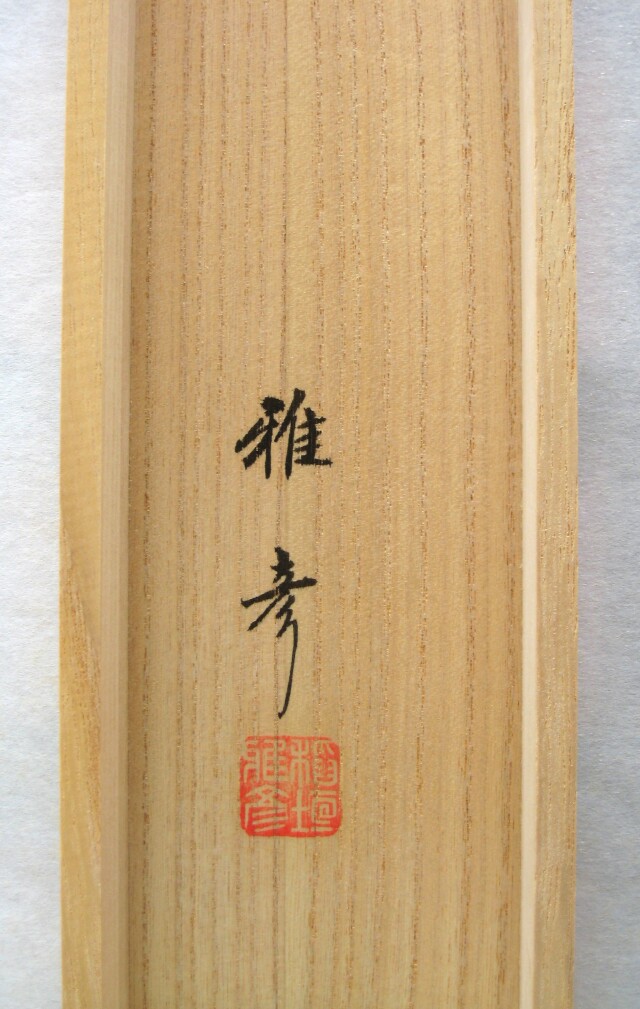 雅彦
稲垣
雅彦